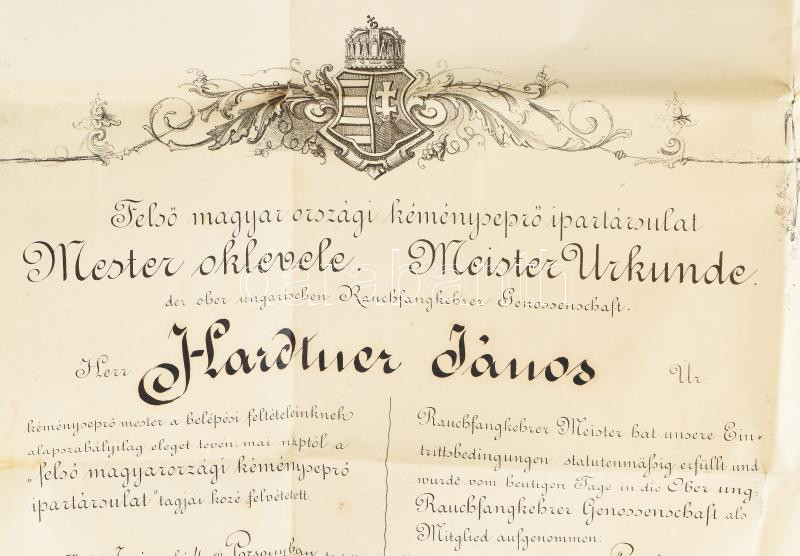 Felső magyar országi kéményseprő ipartársulat
Mester oklevele. Meister Urkunde.
der ober ungarischen Rauchfangkehrer Genossenschaft.
Herr Hardtner János Úr
kéményseprő mester a belépési feltételeinknek
alapszabályilag eleget tevén, mai naptól a
„felső magyarországi kéményseprő
ipartársulat" tagjai közé felvétetett.
Rauchfangkehrer Meister hat unsere Ein-
trittsbedingungen statutenmäßig erfüllt und
wurde vom heutigen Tage in die Ober ung:
Rauchfangkehrer Genossenschaft als
Mitglied aufgenommen.
Pozsonyban